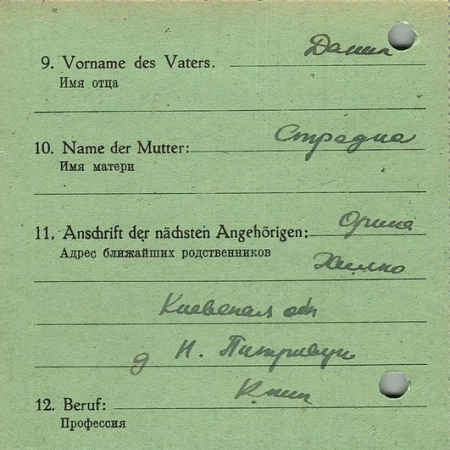 9. Vorname des Vaters. Данил
Имя отца
10. Name der Mutter:
Имя матери
11. Anschrift der nächsten Angehörigen: Орина
Адрес ближайших родственников
Киевская обл
д Н.
12. Beruf:
Профессия